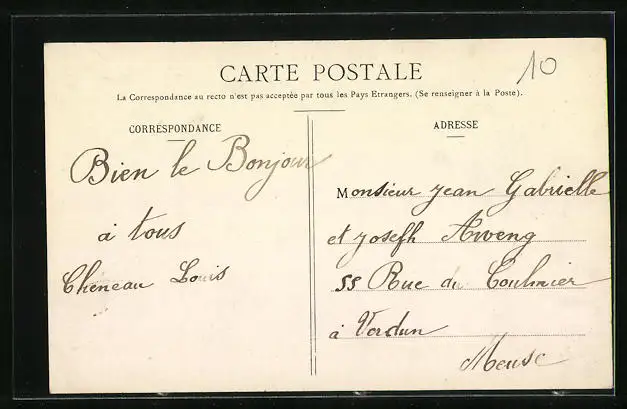 CARTE POSTALE
10
La Correspondance au recto n'est pas acceptée par tous les Pays Etrangers. (Se renseigner à la Poste).
CORRESPONDANCE
Bien le Bonjour
à tous
Cheneau Louis
ADRESSE
Monsieur Jean Gabrielle
et Joseph Aweng
55 Rue du Coulmier
à Verdun
Meuse